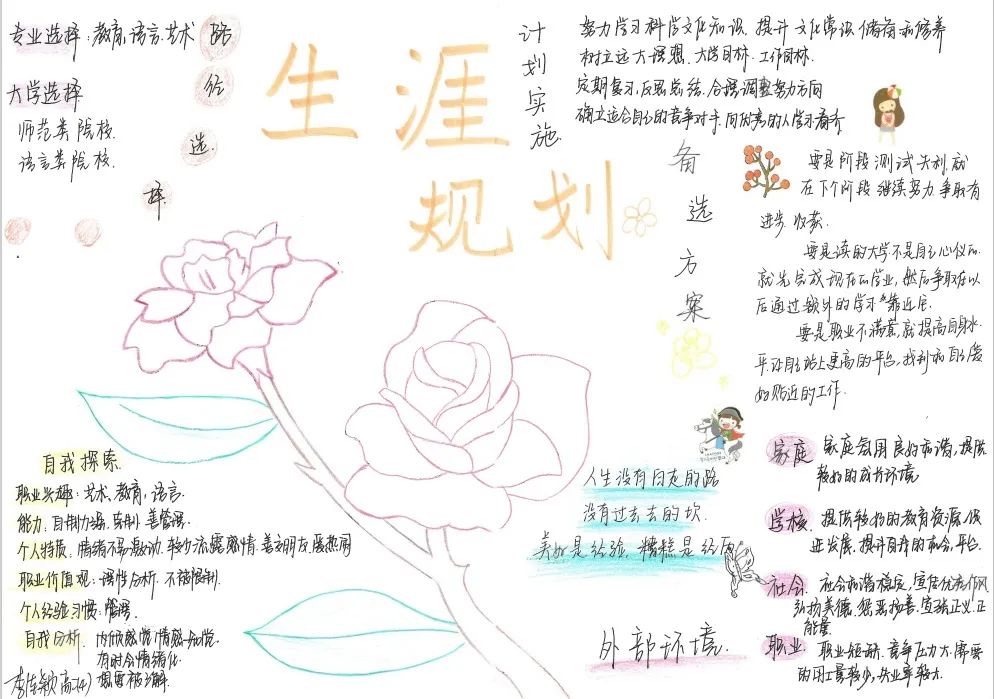 生涯
规划
路
径
选
择
专业选择：教育、语言、艺术
大学选择
师范类院校
语言类院校.
计划实施
努力学习科学文化知识、提升文化常识、储备和修养
树立远大理想、大学目标、工作目标.
定期复习、反思总结、合理调整努力方向
确立适合自己的竞争对手、向优秀的人学习看齐
备选方案
要是阶段测试失利，就
在下个阶段继续努力，争取有
进步、收获.
要是读的大学不是自己心仪的，
就先完成现在的学业，然后争取在以
后通过额外的学习靠近它.
要是职业不满意，就提高自身水
平，让自己站上更高的平台，找到和自己爱
好贴近的工作.
自我探索
职业兴趣：艺术、教育、语言.
能力：自制力强、克制、善管理.
个人特质：情绪不易激动、较少流露感情、喜交朋友、爱热闹
职业价值观：理性分析、不被限制.
个人经验习惯：
自我分析.
有时会情绪化.
人生没有白走的路
没有过不去的坎.
美好是经验，糟糕是经历
外部环境.
家庭 家庭氛围良好和谐，提供
较好的成长环境
学校 提供较好的教育资源，保
证发展、提升自身的机会、平台.
社会 社会和谐稳定，宣传优秀作风
弘扬美德、惩恶扬善、宣张正义、正
能量.
职业 竞争压力大，需要
的用工量较少，失业率较大.